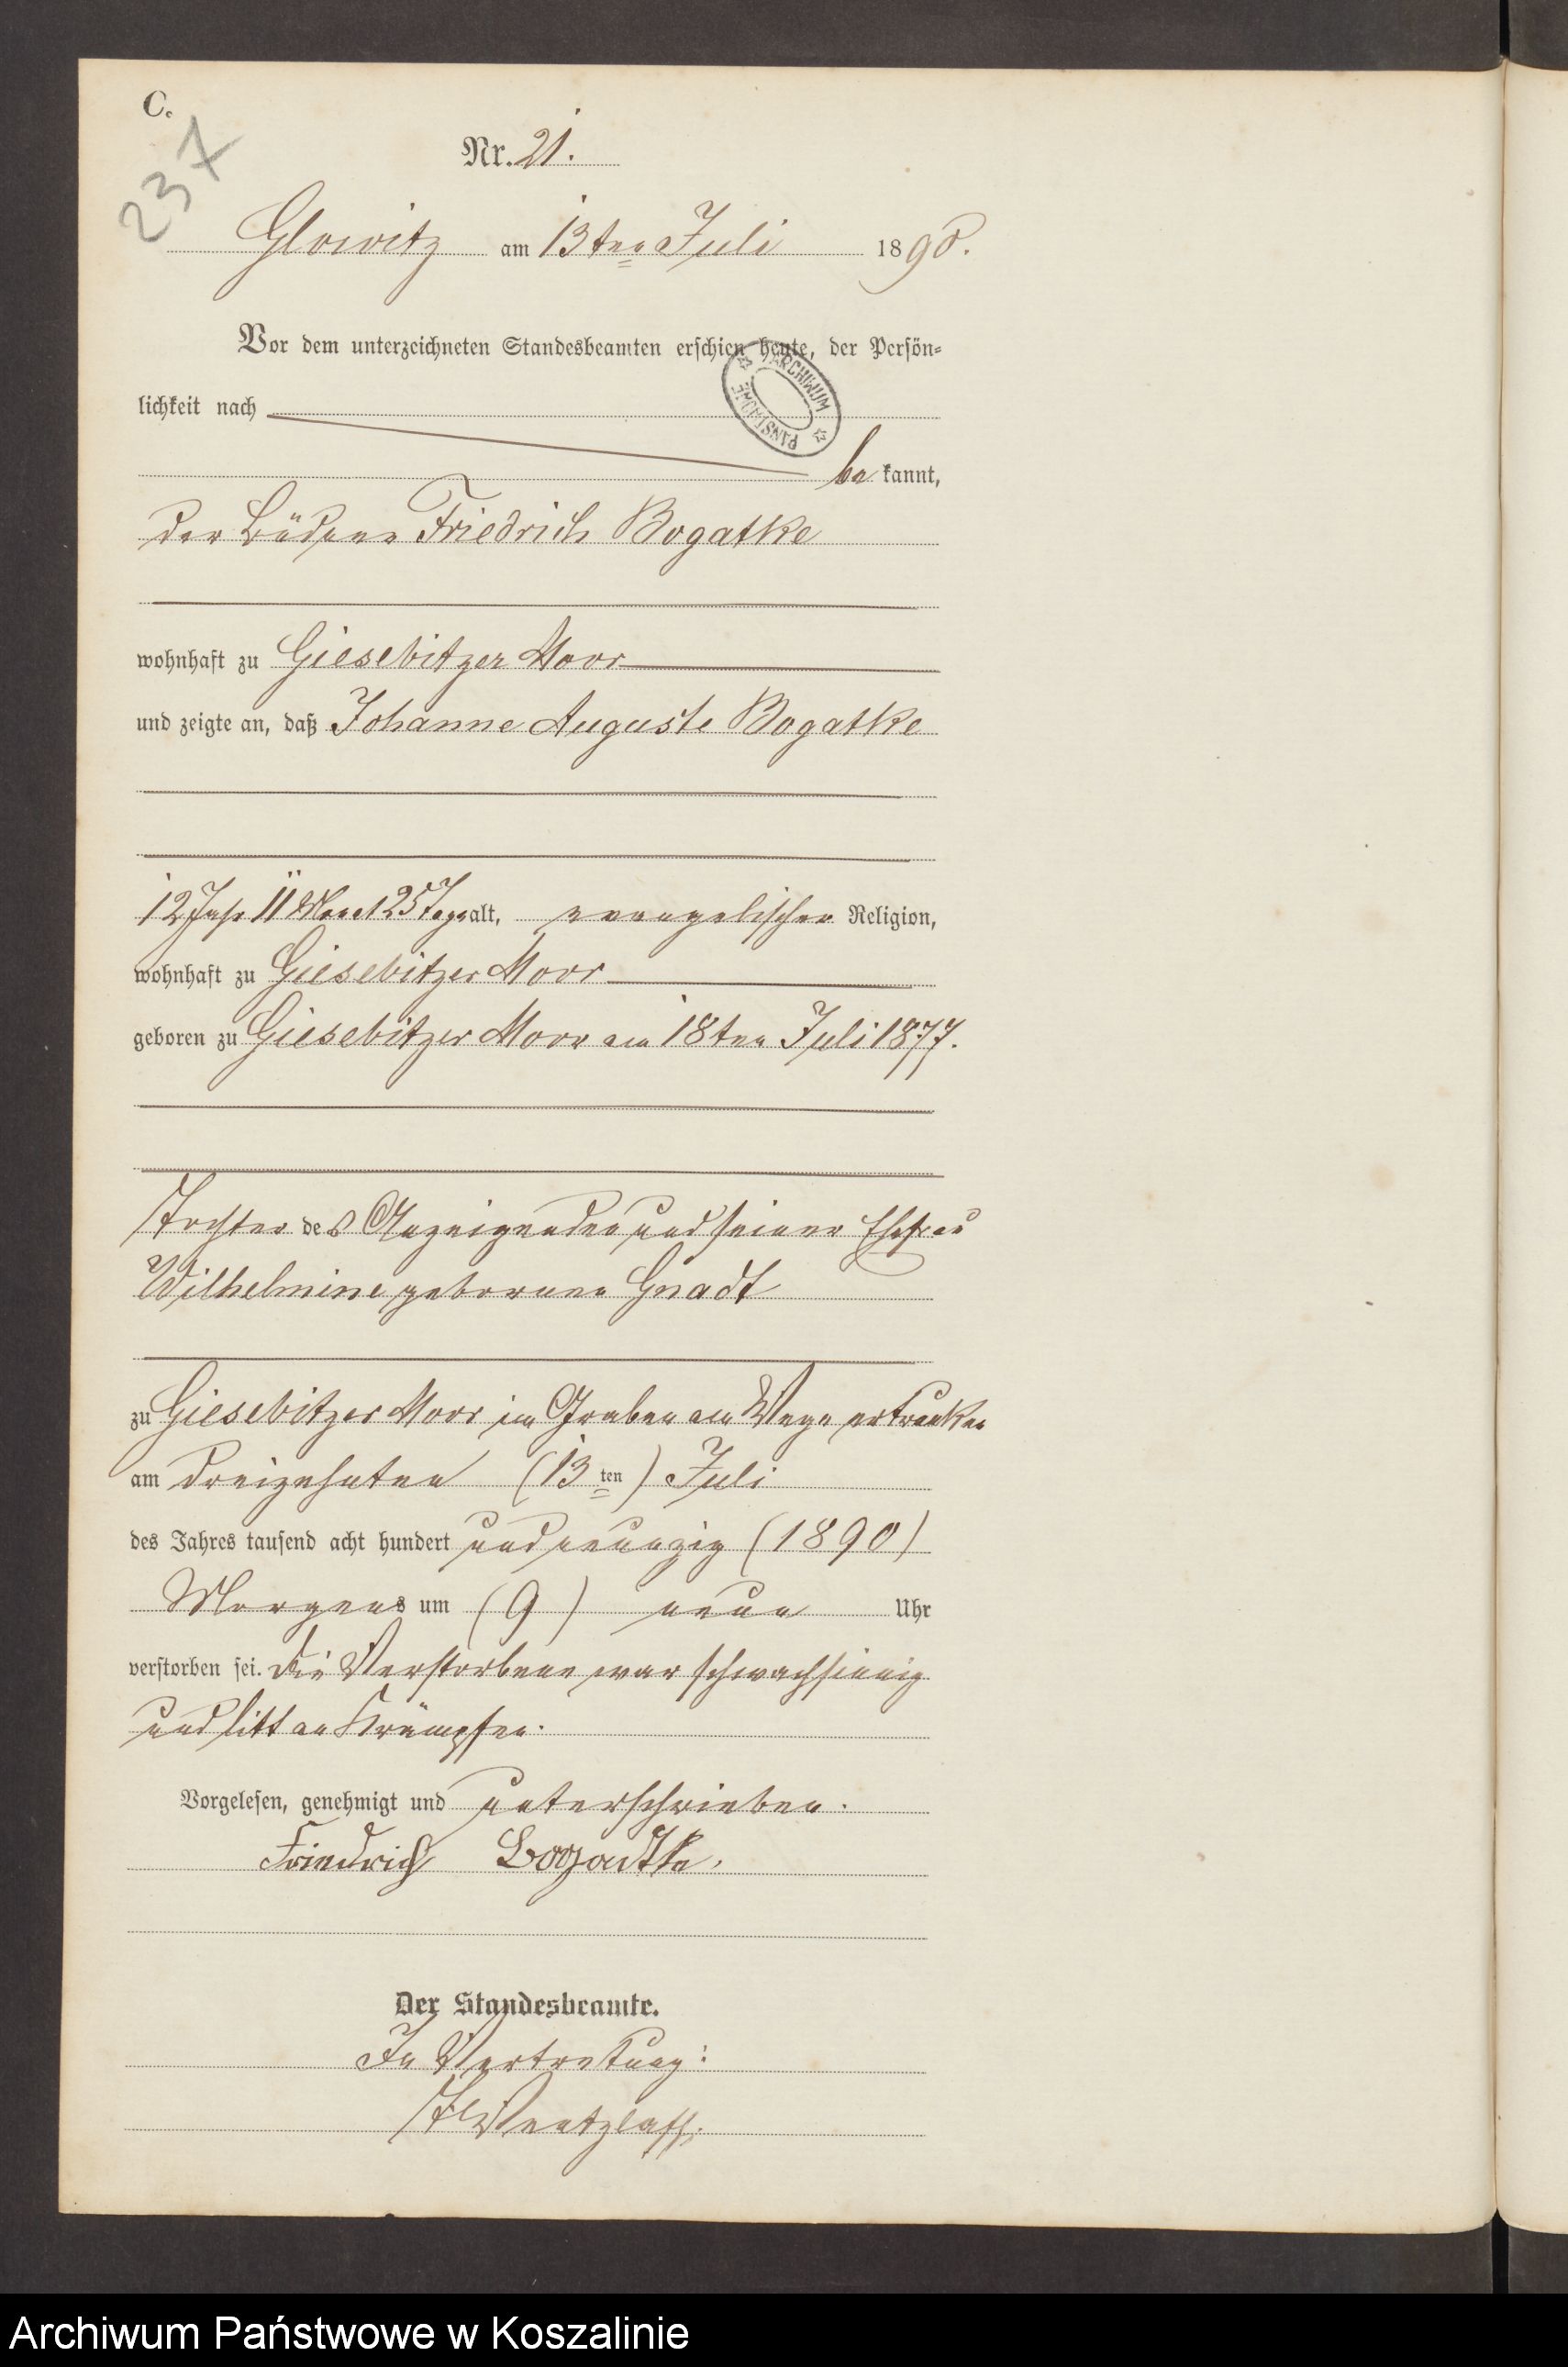 C.
237
Nr. 21.
Glowitz am 13ten Juli 1890.
Vor dem unterzeichneten Standesbeamten erschien heute, der Persön-
lichkeit nach
ARCHIWUM PAŃSTWOWE
be kannt,
der Büdner Friedrich Bogatke
wohnhaft zu Giesebitzer Moor
und zeigte an, daß Johanne Auguste Bogatke
12 Jahr 11 Monat 25 Tage alt, evangelischer Religion,
wohnhaft zu Giesebitzer Moor
geboren zu Giesebitzer Moor am 18ten Juli 1877.
Tochter des Anzeigenden und seiner Ehefrau
Wilhelmine geborenen Gnadt
zu Giesebitzer Moor im Graben am Wege ertrunken
am dreizehnten (13ten) Juli
des Jahres tausend acht hundert und neunzig (1890)
Morgens um (9) neun Uhr
verstorben sei. Die Verstorbene war schwachsinnig
und litt an Krämpfen.
Vorgelesen, genehmigt und unterschrieben.
Friedrich Bogadtke.
Der Standesbeamte.
In Vertretung:
Wentzlaff.
Archiwum Państwowe w Koszalinie